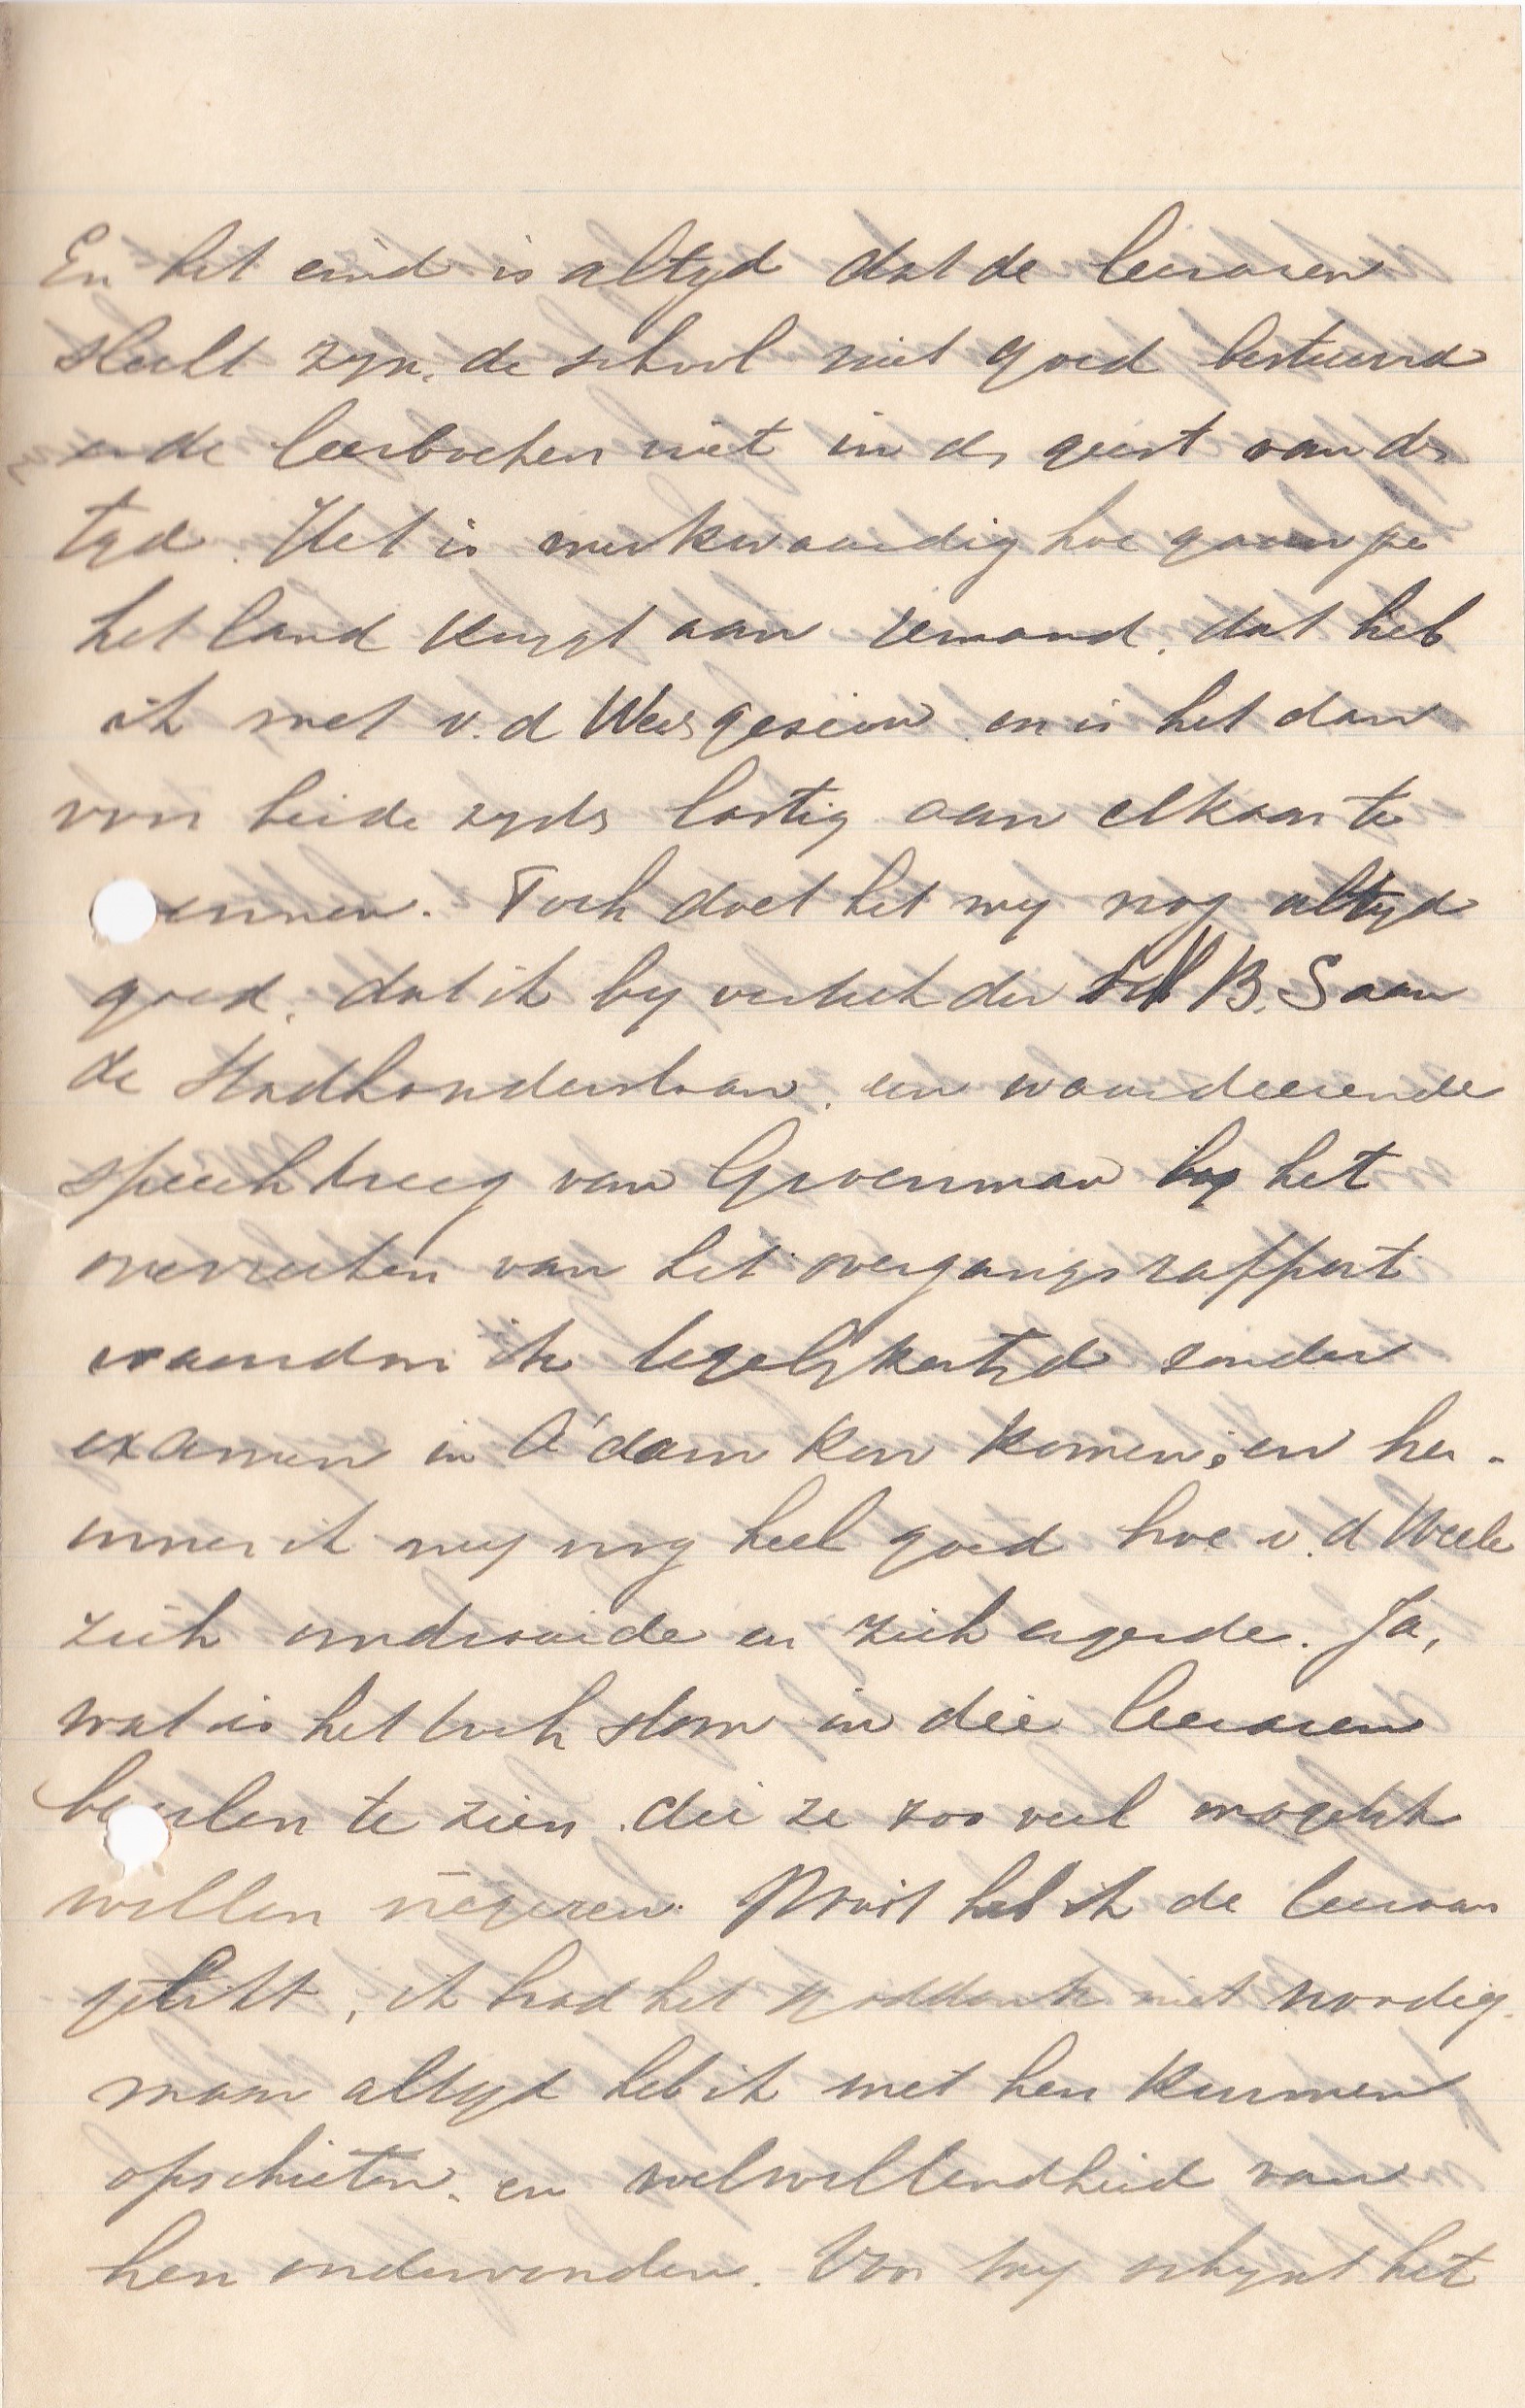 En het eind is altyd dat de leeraren
slecht zyn, de school niet goed bestuurd
en de leerboeken niet in de geest van de
tyd. Het is merkwaardig hoe gauw je
het land krygt aan iemand, dat heb
ik met v.d Weele gezien en is het dan
van beide zyds lastig aan elkaar te
wennen. Toch doet het my nog altyd
goed, dat ik by vertrek der B.S aan
de Stadhouderslaan, een waardeerende
speech kreeg van Groenman by het
overreiken van het overgangsrapport
waardoor ik tegelykertyd zonder
examen in A'dam kon komen; en her-
inner ik my nog heel goed hoe v.d Weele
zich omdraaide en zich ergerde. Ja,
wat is het toch stom in die leeraren
beulen te zien die ze zoo veel mogelyk
willen negeren. Nooit heb ik de leeraar
gelikt, ik had het goddank niet noodig.
maar altyd heb ik met hen kunnen
opschieten, en welwillendheid van
hen ondervonden. Voor my schynt het